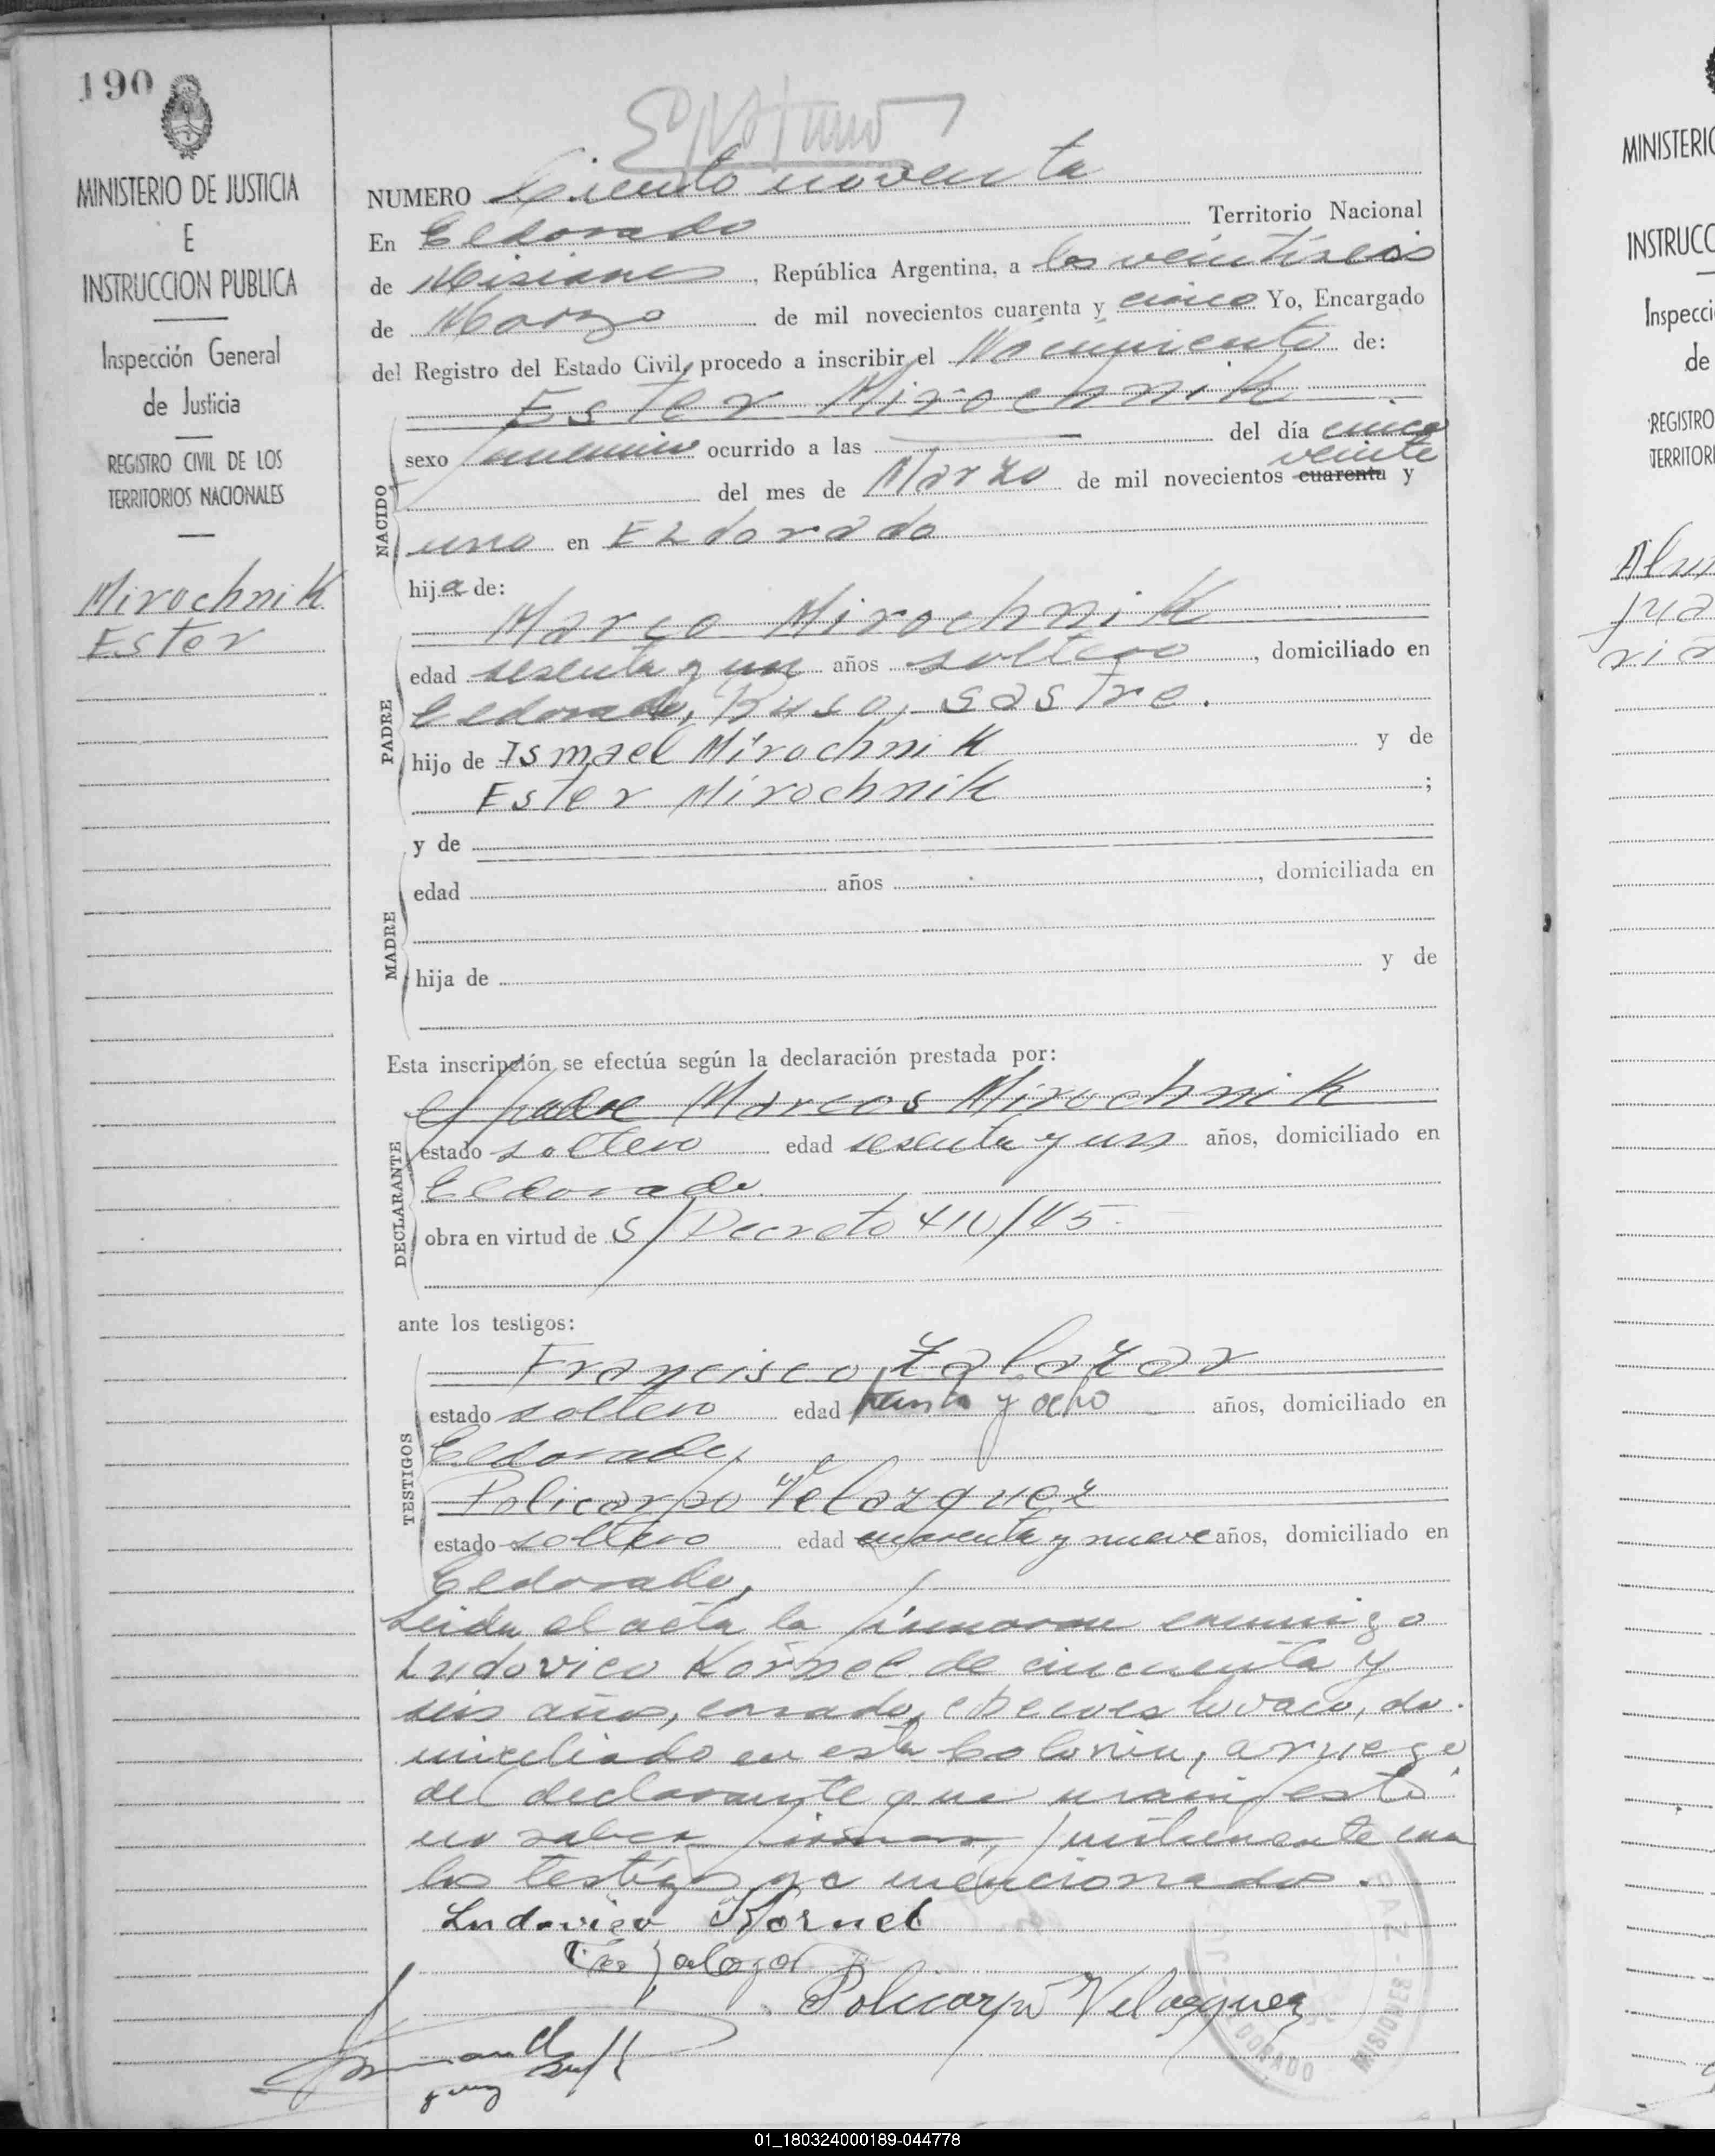 190
MINISTERIO DE JUSTICIA
E
INSTRUCCION PUBLICA
Inspección General
de Justicia
REGISTRO CIVIL DE LOS
TERRITORIOS NACIONALES
Mirochnik
Ester
NUMERO Ciento noventa
En Eldorado Territorio Nacional
de Misiones, República Argentina, a los veintiseis
de Marzo de mil novecientos cuarenta y cinco Yo, Encargado
del Registro del Estado Civil, procedo a inscribir el Nacimiento de:
Ester Mirochnik
NACIDO
sexo femenino ocurrido a las del día cinco
veinte
del mes de Marzo de mil novecientos cuarenta y
uno en ELdorado
hija de:
Marco Mirochnik
PADRE
edad sesenta y un años soltero, domiciliado en
Eldorado, Ruso, sastre.
hijo de Ismael Mirochnik y de
Ester Mirochnik;
MADRE
y de
edad años, domiciliada en
hija de y de
Esta inscripción se efectúa según la declaración prestada por:
DECLARANTE
el padre Marcos Mirochnik
estado soltero edad sesenta y un años, domiciliado en
Eldorado
obra en virtud de S/ Decreto 410/45.
ante los testigos:
TESTIGOS
Francisco Zalazar
estado soltero edad treinta y ocho años, domiciliado en
Eldorado,
Policarpo Velazquez
estado soltero edad cuarenta y nueve años, domiciliado en
Eldorado,
Leida el acta la firmaron conmigo
Ludovico Kornel de cincuenta y
seis años, casado, checoeslovaco, do-
miciliado en esta Colonia, a ruego
del declarante que manifestó
no saber firmar, juntamente con
los testigos ya mencionados.
Ludovico Kornel
Zalazar
Policarpo Velazquez
PAZ - MISIONES
DORADO
MINISTERIO
INSTRUCC
Inspecci
de
REGISTRO
TERRITORI
01_180324000189-044778